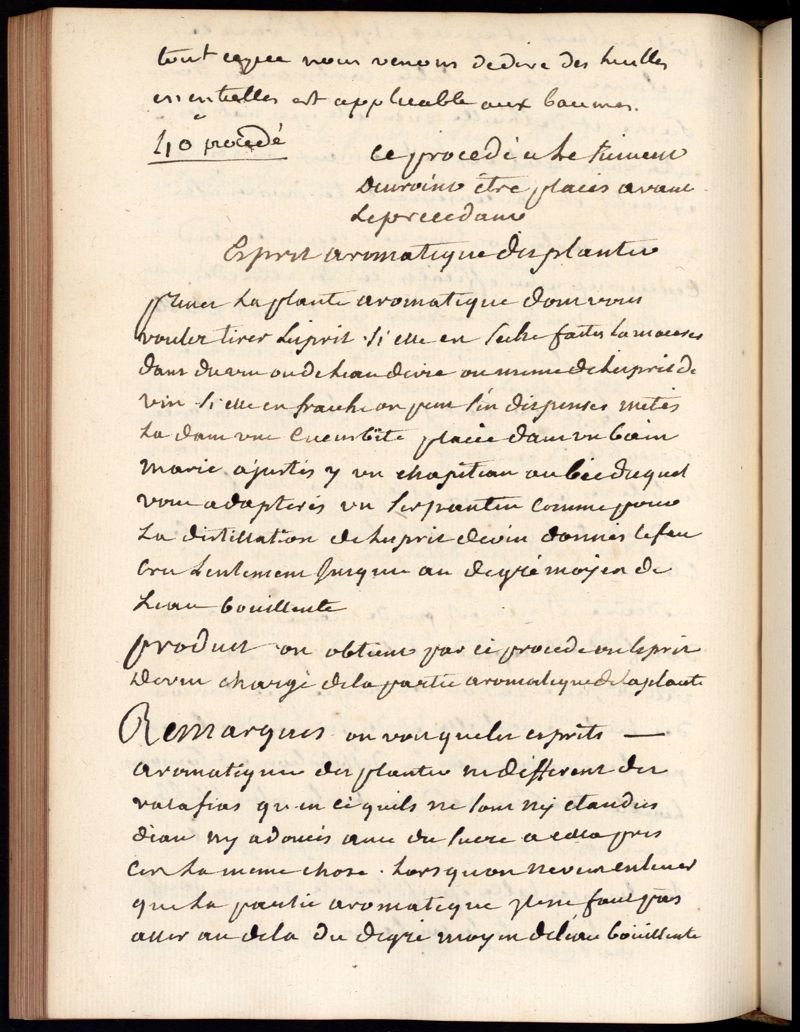 tout ceque nous venons dedire des huilles
essentielles est applicable aux baumes.
40e procedé
ce procedé et le suivent
devroint être placés avant
le precedant
Esprit aromatique des plantes
prenes la plante aromatique dont vous
voules tirer lesprit. si elle en seche faites la macerer
dans du vin ou de leau devie ou meme de lesprit de
vin. si elle en fraiche on peut s'en dispenser metés
la dans une Cucurbite placée dans un bain
marie ajustés y un chapitau au béc duquel
vous adapterés un serpantin comme pour
la distillation de lesprit devin donnés le feu
lentement jusque au degré moyen de
leau bouillente
produit on obtient par ce procede un lesprit
devin chargé dela partie aromatique de la plante
Remarques on voit que les esprits —
aromatiques des plantes ne different des
ratafias qu'en ce quils ne sont ny etandus
deau ny adoucis avec du sucre a cela pres
cest la meme chose. Lorsquon ne veut enlever
que la partie aromatique il ne faut pas
aller au dela du degré moyen deleau bouillente